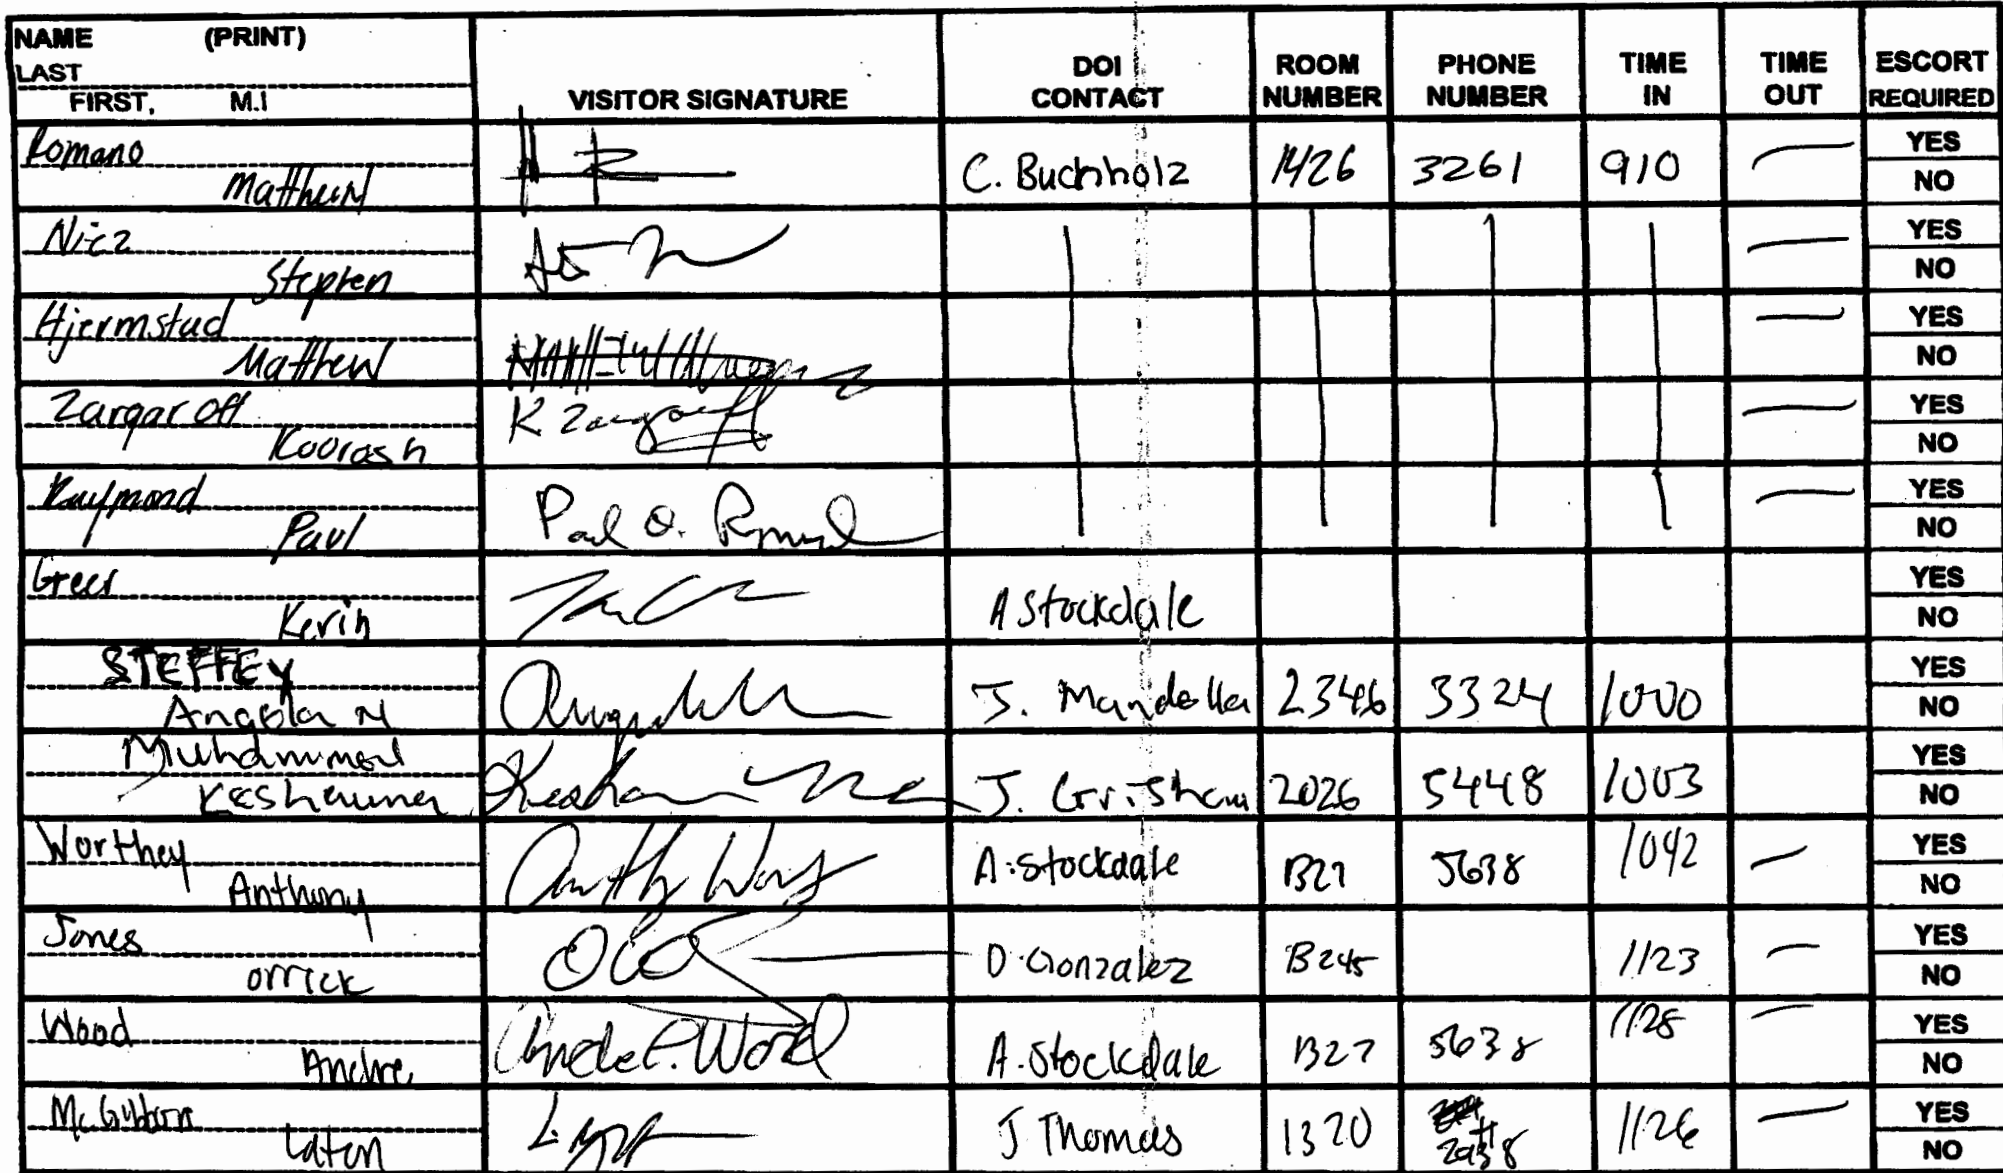 NAME (PRINT)
LAST
FIRST, M.I
VISITOR SIGNATURE
DOI CONTACT
ROOM NUMBER
PHONE NUMBER
TIME IN
TIME OUT
ESCORT REQUIRED
Romano
Matthew C. Buchholz 1426 3261 910 YES NO
Nicz
Stephen YES NO
Hjermstad
Matthew YES NO
Zargaroff
Koorosh K Zargaroff YES NO
Raymond
Paul Paul O. Raymond YES NO
Greer
Kevin A Stockdale YES NO
STEFFEY
Angela M J. 2346 3324 1000 YES NO
Muhammad
J. Grisham 2026 5448 1003 YES NO
Worthey
Anthony A. Stockdale B27 5638 1042 YES NO
Jones
Orrick D. Gonzalez B245 1123 YES NO
Wood
Andre Andre E. Wood A. Stockdale B27 5638 1128 YES NO
McGibbon
Laton J Thomas 1320 1126 YES NO